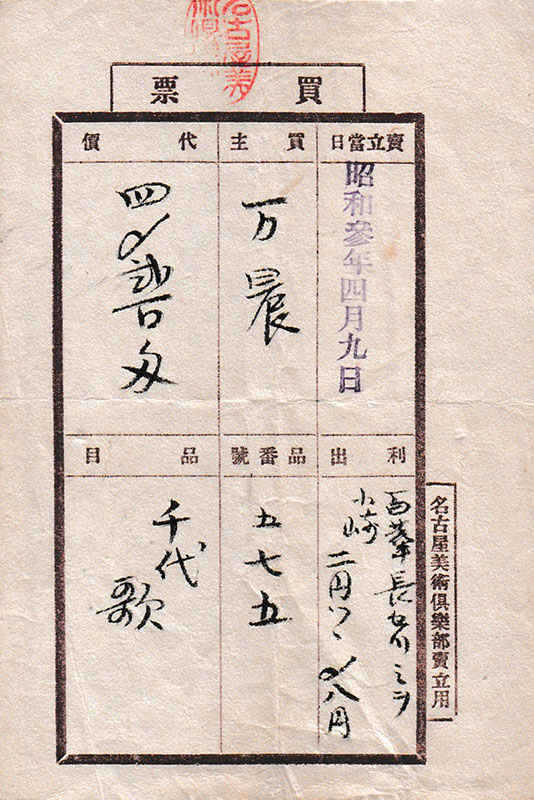 名古屋美術倶
買票
賣立當日
昭和参年四月九日
買主
万晨
代價
利出
長谷川ミヲ
小崎
二円
八円
品番號
五七五
品目
千代
歌
名古屋美術倶樂部賣立用